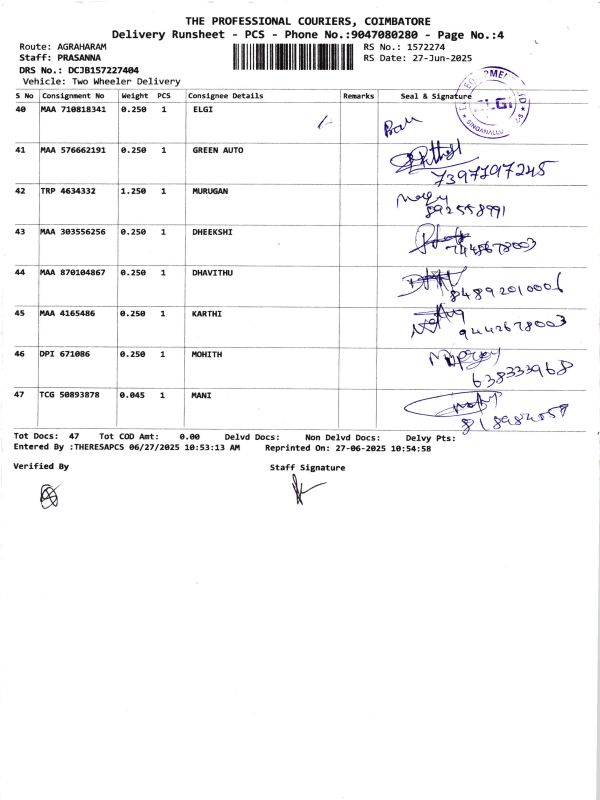 THE PROFESSIONAL COURIERS, COIMBATORE
Delivery Runsheet - PCS - Phone No.:9047080280 - Page No.:4
Route: AGRAHARAM
RS No.: 1572274
Staff: PRASANNA
RS Date: 27-Jun-2025
DRS No.: DCJB157227404
Vehicle: Two Wheeler Delivery
S No Consignment No Weight PCS Consignee Details Remarks Seal & Signature
ELGi
SINGANALLUR
40 MAA 710818341 0.250 1 ELGI
41 MAA 576662191 0.250 1 GREEN AUTO
7397197245
42 TRP 4634332 1.250 1 MURUGAN
892558991
43 MAA 303556256 0.250 1 DHEEKSHI
44 MAA 870104867 0.250 1 DHAVITHU
84892010006
45 MAA 4165486 0.250 1 KARTHI
9442678003
46 DPI 671086 0.250 1 MOHITH
638333968
47 TCG 50893878 0.045 1 MANI
Tot Docs: 47 Tot COD Amt: 0.00 Delvd Docs: Non Delvd Docs: Delvy Pts:
Entered By :THERESAPCS 06/27/2025 10:53:13 AM Reprinted On: 27-06-2025 10:54:58
Verified By Staff Signature